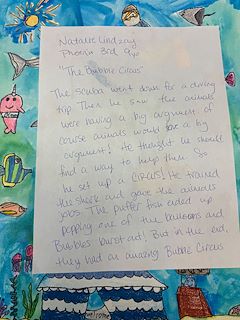 Natalie Lindzay
Phoenix 3rd 9yo
"The Bubble Circus"
The scuba went down for a diving
trip. Then he saw the animals
were having a big argument of
course animals would love a big
argument! He thought he should
find a way to help them. So
he set up a CIRCUS! He trained
the shark and gave the animals
jobs. The puffer fish ended up
popping one of the balloons and
Bubbles burst ad! But in the end,
they had an amazing Bubble Circus
welcome